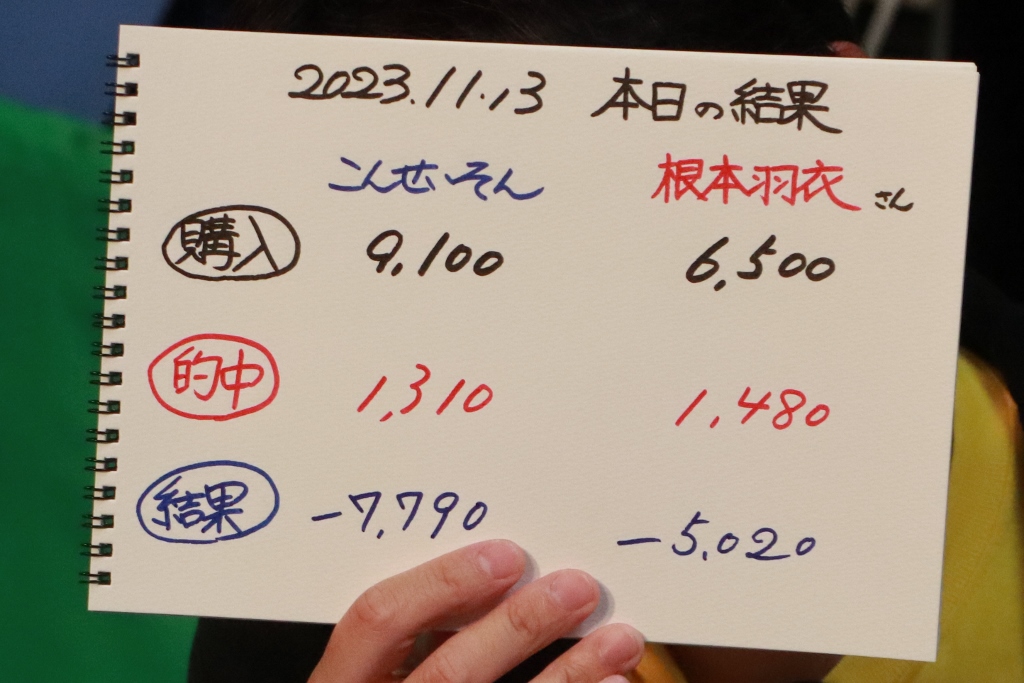 2023.11.13 本日の結果
こんせいそん 根本羽衣さん
購入 9,100 6,500
的中 1,310 1,480
結果 -7,790 -5,020